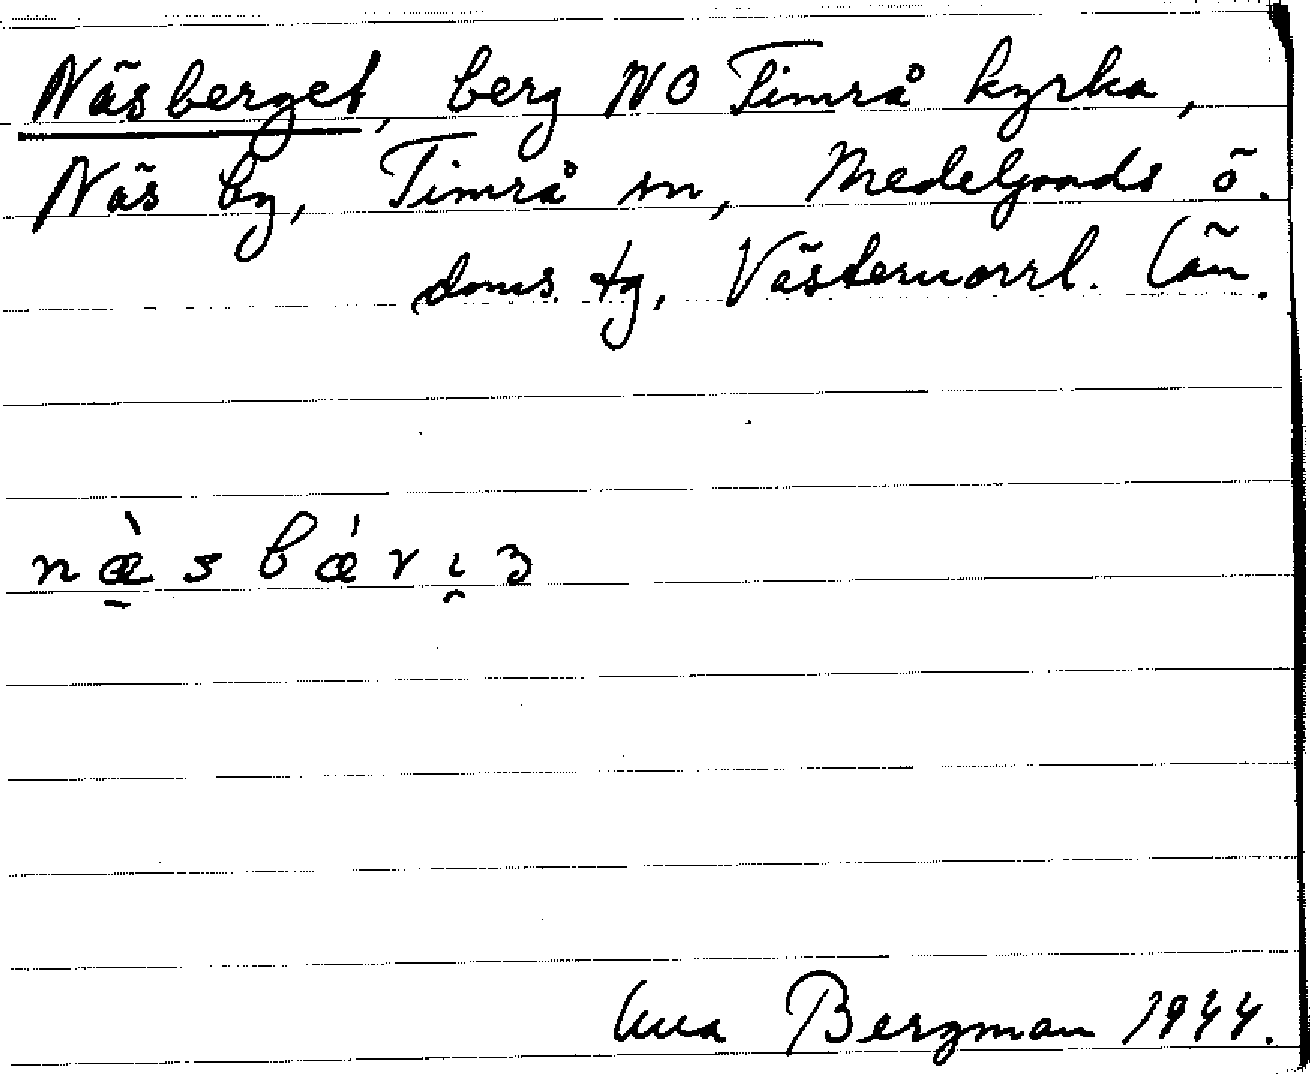 Näsberget, berg NO Timrå kyrka,
Näs by, Timrå sn, Medelpads ö.
doms. tg, Västernorrl. län.
næ̠̀sbǽrı̯ʒ
Anna Bergman 1944.